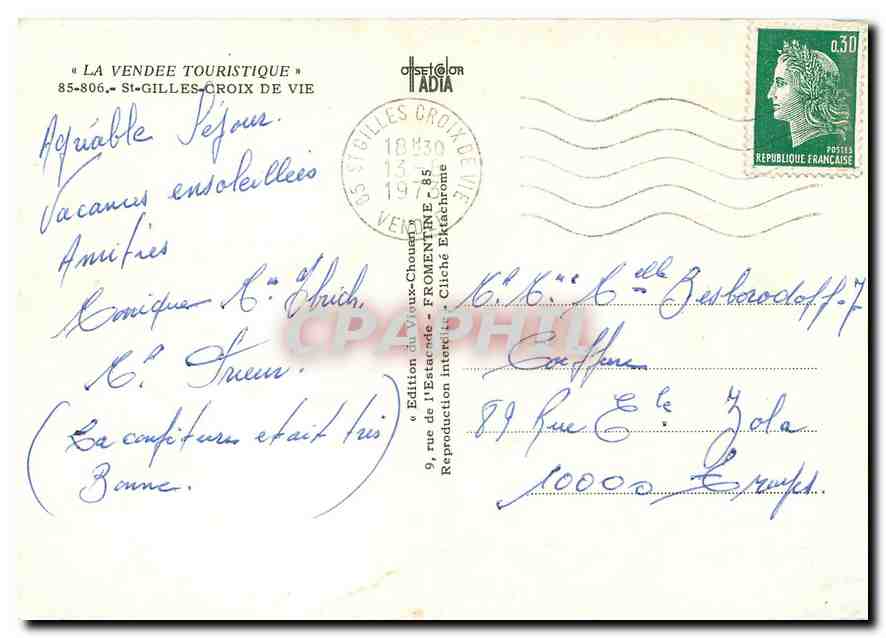 « LA VENDEE TOURISTIQUE »
85-806.- St-GILLES-CROIX DE VIE
OFFSET COLOR
IADIA
Agréable Séjour.
Vacances ensoleillées
Amitiés
Monique Mme
Mr
(La confiture etait très
Bonne.)
85 ST GILLES CROIX DE VIE
18 H30
13
1973
VENDEE
0,30
POSTES
REPUBLIQUE FRANÇAISE
« Edition du Vieux-Chouan »
9, rue de l'Estacade - FROMENTINE - 85
Reproduction interdite - Cliché Ektachrome
CPAPHIL
Mr. Mme Melle Besborodoff. J
Coiffure
89 Rue Ele Zola
10000 Troyes.